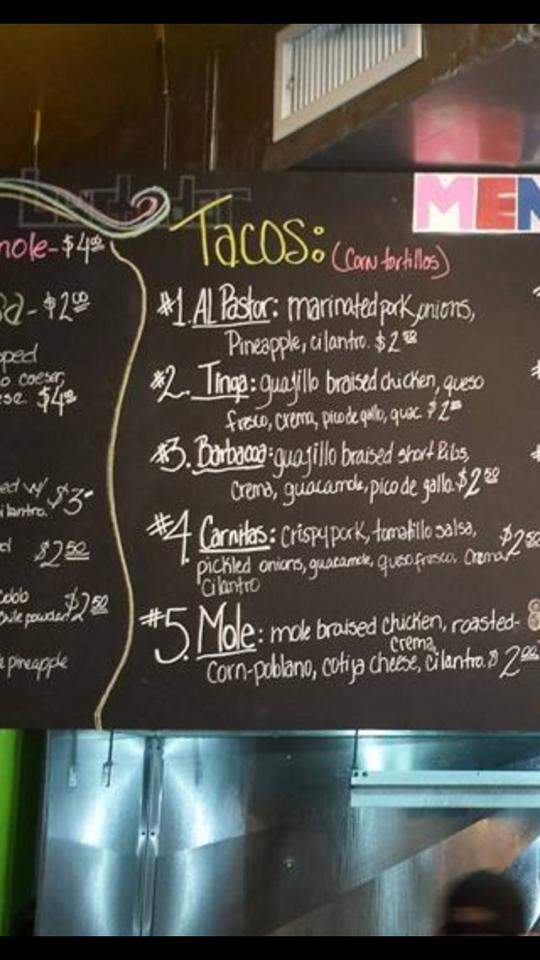 MEN
Tacos:
(Corn tortillas)
#1. Al Pastor: marinated pork, onions,
Pineapple, cilantro. $2
#2. Tinga: guajillo braised chicken, queso
fresco, crema, pico de gallo, guac. $2
#3. Barbacoa: guajillo braised short Ribs,
Crema, guacamole, pico de gallo. $2 50
#4 Carnitas: crispy pork, tomatillo salsa, $2 50
pickled onions, guacamole, queso fresco, Crema,
Cilantro
#5. Mole: mole braised chicken, roasted-
crema,
Corn-poblano, cotija cheese, cilantro. $2.00
mole - $4
a - $2.00
pped
o caeser,
ese. $4
ed w/ $3
ilantro.
$2 50
Cobb
Chile powder $2 50
pineapple